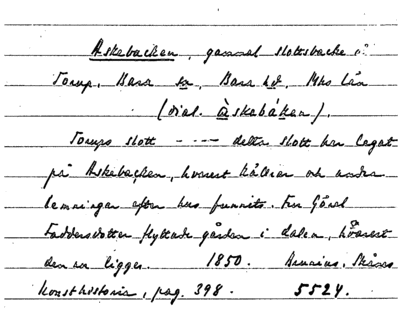 Askebacken, gammal slottsbacke i
Torup, Bara sn, Bara hd, Mhs län
(dial. àskabákan).
Torups slott - - - - detta slott har legat
på Askebacken, hvarest källrar och andra
lemningar efter hus funnits. Fru Görvel
Faddersdotter flyttade gården i dalen, hvarest
den nu ligger. 1850. Brunius, Skånes
konsthistoria, pag. 398. 5524.